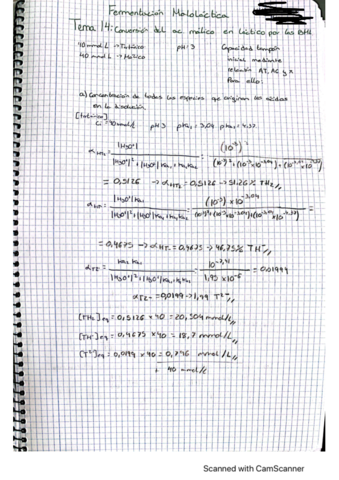 Fermentación Maloláctica
Tema 14: Conversión del ac. málico en láctico por las BAL
40 mmol/L → Tartárico pH: 3 Capacidad tampón
40 mmol/L → Málico inicial mediante
relación AT, AC y
Para ello:
a) Concentración de todas las especies que originan los ácidos
en la disolución
[tartárico]
Ci = 40 mmol/L pH 3 pKa1 = 3,04 pKa2 = 4,37
αTH2 = |H3O+|² / |H3O+|² + |H3O+| Ka1 + Ka1 Ka2 = (10^-3)² / (10^-3)² + (10^-3 × 10^-3,04) + (10^-3,04 × 10^-4,37)
= 0,5126 → αTH2 = 0,5126 → 51,26% TH2
αTH- = |H3O+| Ka1 / |H3O+|² + |H3O+| Ka1 + Ka1 Ka2 = (10^-3) × 10^-3,04 / (10^-3)² + (10^-3 × 10^-3,04) + (10^-3,04 × 10^-4,37) =
= 0,4675 → αTH- = 0,4675 → 46,75% TH-
αT2- = Ka1 Ka2 / |H3O+|² + |H3O+| Ka1 + Ka1 Ka2 = 10^-7,41 / 1,95 × 10^-6 = 0,01999
αT2- = 0,0199 → 1,99 T2-
[TH2]eq = 0,5126 × 40 = 20,504 mmol/L
[TH-]eq = 0,4675 × 40 = 18,7 mmol/L
[T2-]eq = 0,0199 × 40 = 0,796 mmol/L
+ 40 mmol/L
Scanned with CamScanner